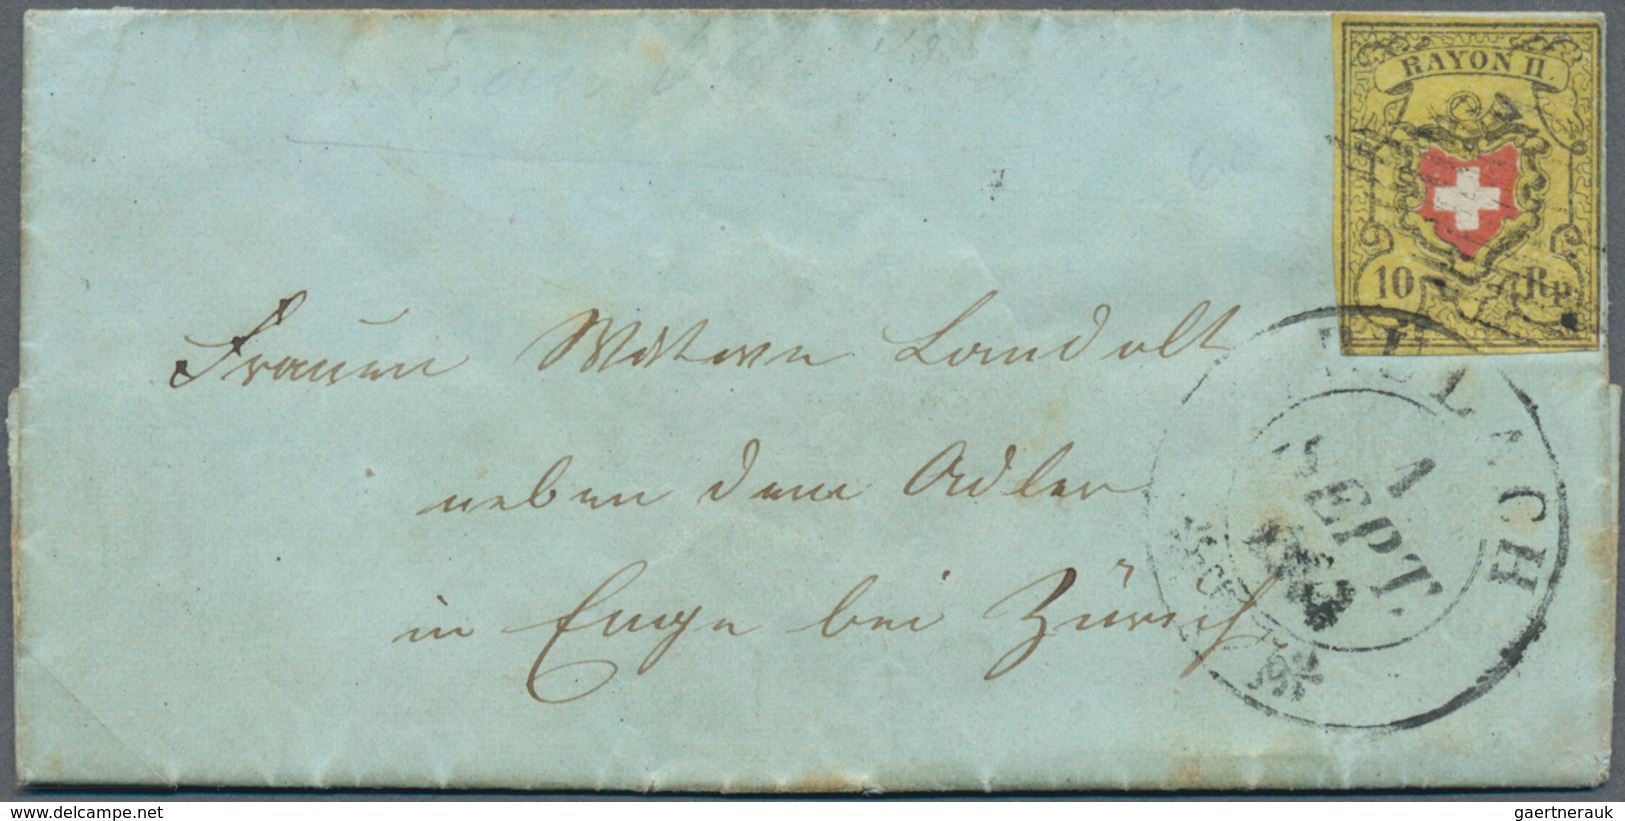 RAYON II.
10 Rp.
Frauen Wittwe Landolt
neben dem Adler
in Enge bei Zürich
BÜLACH
1
SEPT.
delcampe.net
gaertnerauk